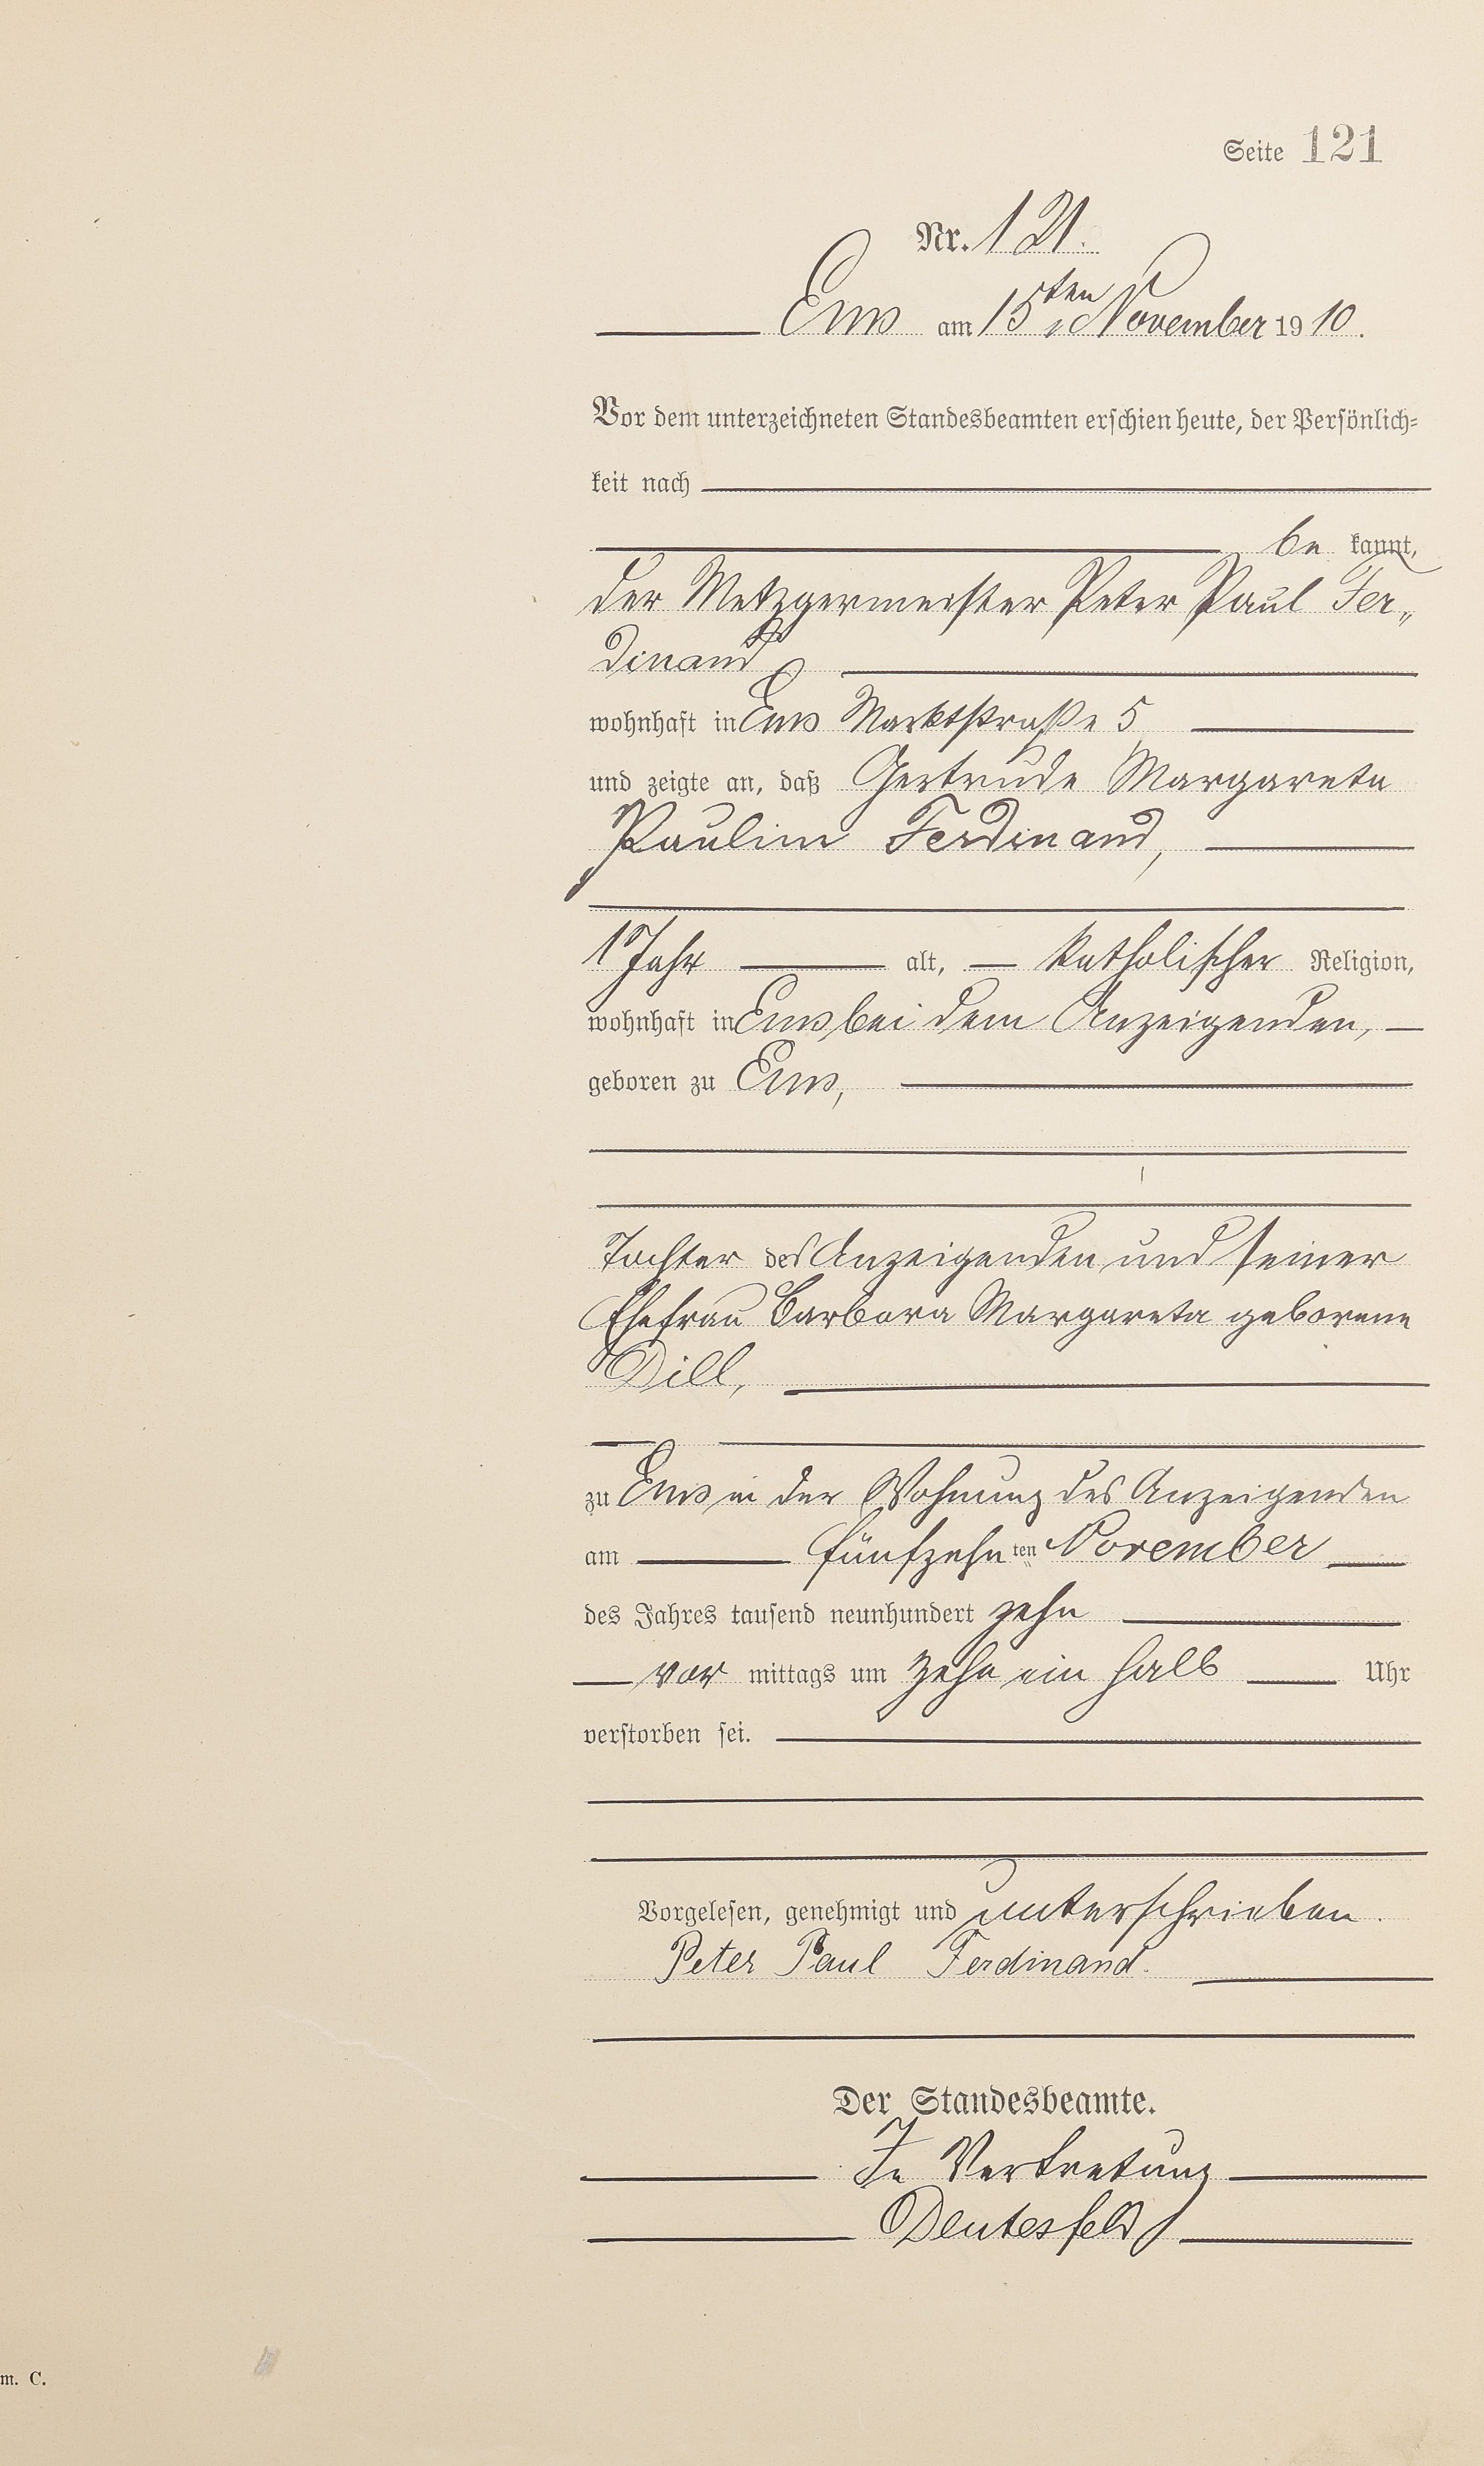 Seite 121
Nr. 121.
Ems am 15ten November 1910.
Vor dem unterzeichneten Standesbeamten erschien heute, der Persönlich=
keit nach
be kannt,
der Metzgermeister Peter Paul Fer„
dinand
wohnhaft in Ems Marktstraße 5
und zeigte an, daß Gertrude Margareta
Pauline Ferdinand,
1 Jahr alt, katholischer Religion,
wohnhaft in Ems bei dem Anzeigenden,
geboren zu Ems,
Tochter des Anzeigenden und seiner
Ehefrau Barbara Margareta geborene
Dill,
zu Ems in der Wohnung des Anzeigenden
am fünfzehnten November
des Jahres tausend neunhundert zehn
vor mittags um zehn ein halb Uhr
verstorben sei.
Vorgelesen, genehmigt und unterschrieben.
Peter Paul Ferdinand.
Der Standesbeamte.
In Vertretung
Deutesfeld
m. C.